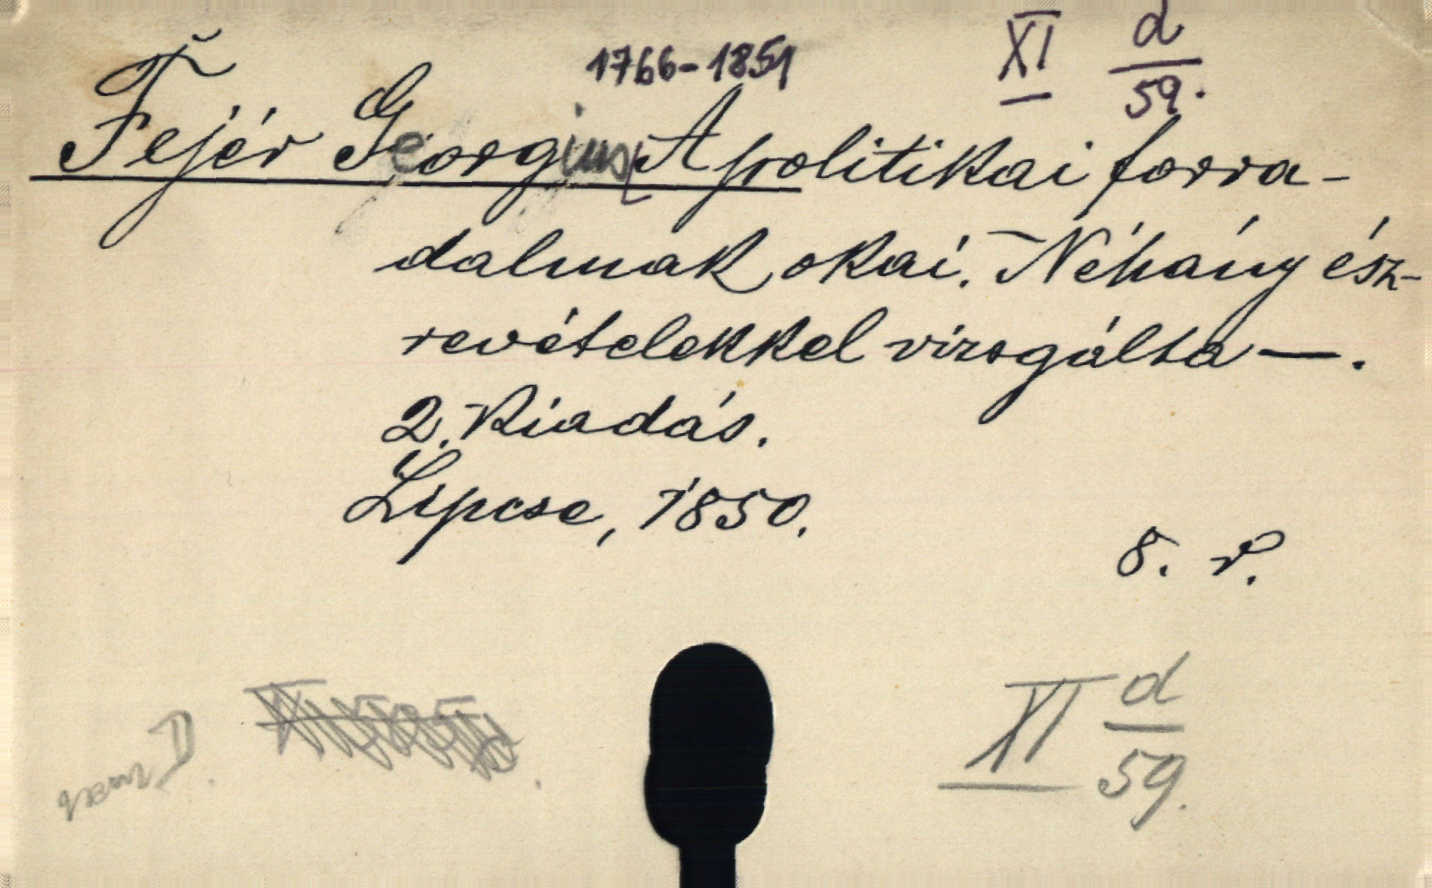 1766-1851
XI d/59.
Fejér Georgius A politikai forra-
dalmak okai. Néhány ész-
revételekkel vizsgálta —.
2. kiadás.
Lipcse, 1850.
8. r.
XI d/59.
nem D.